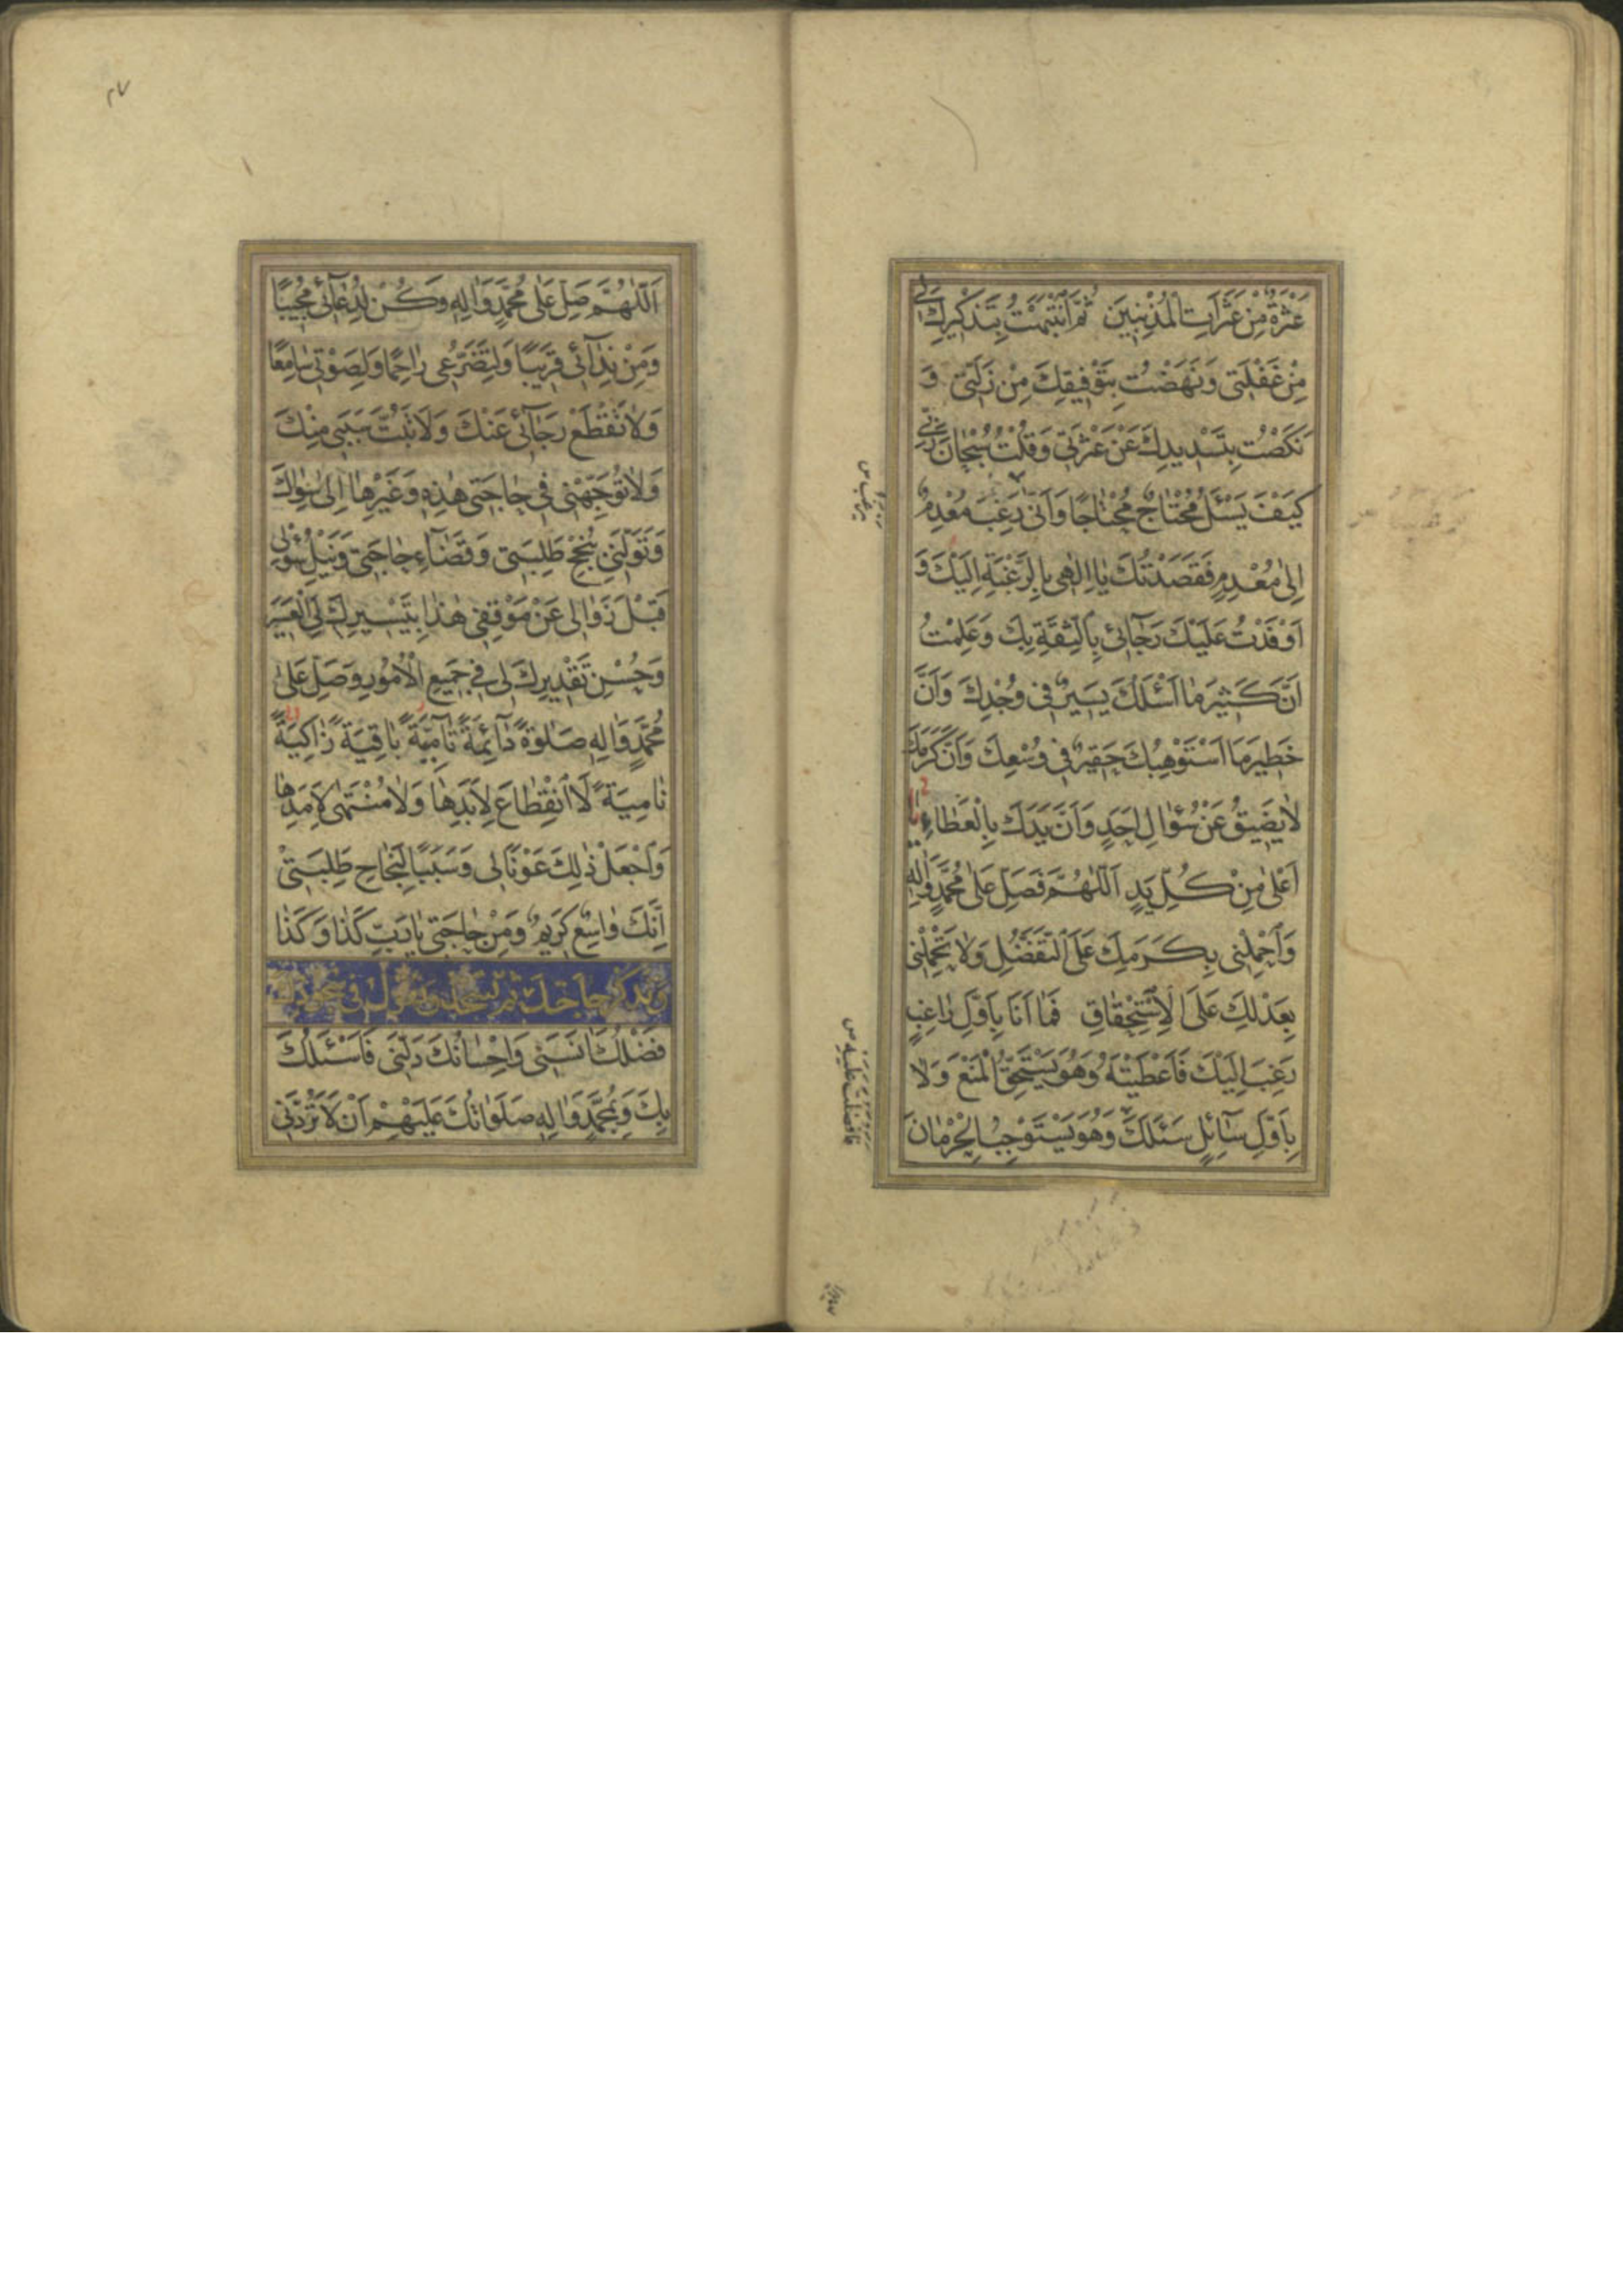 عَثْرَةٌ مِنْ عَثَرَاتِ الْمُذْنِبِينَ ثُمَّ انْتَبَهْتُ بِتَذْكِيرِكَ لِي
مِنْ غَفْلَتِي وَنَهَضْتُ بِتَوْفِيقِكَ مِنْ زَلَّتِي وَ
نَكَصْتُ بِتَسْدِيدِكَ عَنْ عَثْرَتِي وَقُلْتُ سُبْحَانَ رَبِّي
كَيْفَ يَسْئَلُ مُحْتَاجٌ مُحْتَاجًا وَأَنَّى رَغِبَ مُعْدِمٌ
إِلَى مُعْدِمٍ فَقَصَدْتُكَ يَا إِلَهِي بِالرَّغْبَةِ إِلَيْكَ وَ
أَوْفَدْتُ عَلَيْكَ رَجَائِي بِالثِّقَةِ بِكَ وَعَلِمْتُ
أَنَّ كَثِيرَ مَا أَسْئَلُكَ يَسِيرٌ فِي وُجْدِكَ وَأَنَّ
خَطِيرَ مَا أَسْتَوْهِبُكَ حَقِيرٌ فِي وُسْعِكَ وَأَنَّ كَرَمَكَ
لَا يَضِيقُ عَنْ سُؤَالِ أَحَدٍ وَأَنَّ يَدَكَ بِالْعَطَاءِ
أَعْلَى مِنْ كُلِّ يَدٍ اَللّٰهُمَّ فَصَلِّ عَلَى مُحَمَّدٍ وَآلِهِ
وَاحْمِلْنِي بِكَرَمِكَ عَلَى التَّفَضُّلِ وَلَا تَحْمِلْنِي
بِعَدْلِكَ عَلَى الْاِسْتِحْقَاقِ فَمَا أَنَا بِأَوَّلِ رَاغِبٍ
رَغِبَ إِلَيْكَ فَأَعْطَيْتَهُ وَهُوَ يَسْتَحِقُّ الْمَنْعَ وَلَا
بِأَوَّلِ سَائِلٍ سَئَلَكَ وَهُوَ يَسْتَوْجِبُ الْحِرْمَانَ
يرغب س
فافضلت عليه س
اَللّٰهُمَّ صَلِّ عَلَى مُحَمَّدٍ وَآلِهِ وَكُنْ لِدُعَائِي مُجِيبًا
وَمِنْ نِدَائِي قَرِيبًا وَلِتَضَرُّعِي رَاحِمًا وَلِصَوْتِي سَامِعًا
وَلَا تَقْطَعْ رَجَائِي عَنْكَ وَلَا تَبُتَّ سَبَبِي مِنْكَ
وَلَا تُوَجِّهْنِي فِي حَاجَتِي هٰذِهِ وَغَيْرِهَا إِلَى سِوَاكَ
وَتَوَلَّنِي بِنُجْحِ طَلِبَتِي وَقَضَاءِ حَاجَتِي وَنَيْلِ سُؤْلِي
قَبْلَ زَوَالِي عَنْ مَوْقِفِي هٰذَا بِتَيْسِيرِكَ لِيَ الْعَسِيرَ
وَحُسْنِ تَقْدِيرِكَ لِي فِي جَمِيعِ الْأُمُورِ وَصَلِّ عَلَى
مُحَمَّدٍ وَآلِهِ صَلٰوةً دَائِمَةً نَامِيَةً بَاقِيَةً زَاكِيَةً
نَامِيَةً لَا انْقِطَاعَ لِأَبَدِهَا وَلَا مُنْتَهٰى لِأَمَدِهَا
وَاجْعَلْ ذٰلِكَ عَوْنًا لِي وَسَبَبًا لِنَجَاحِ طَلِبَتِي
إِنَّكَ وَاسِعٌ كَرِيمٌ وَمِنْ حَاجَتِي يَا رَبِّ كَذَا وَكَذَا
وتذكر حاجتك ثم تسجد وتقول في سجودك
فَضْلُكَ آنَسَنِي وَإِحْسَانُكَ دَلَّنِي فَأَسْئَلُكَ
بِكَ وَبِمُحَمَّدٍ وَآلِهِ صَلَوَاتُكَ عَلَيْهِمْ أَنْ لَا تَرُدَّنِي